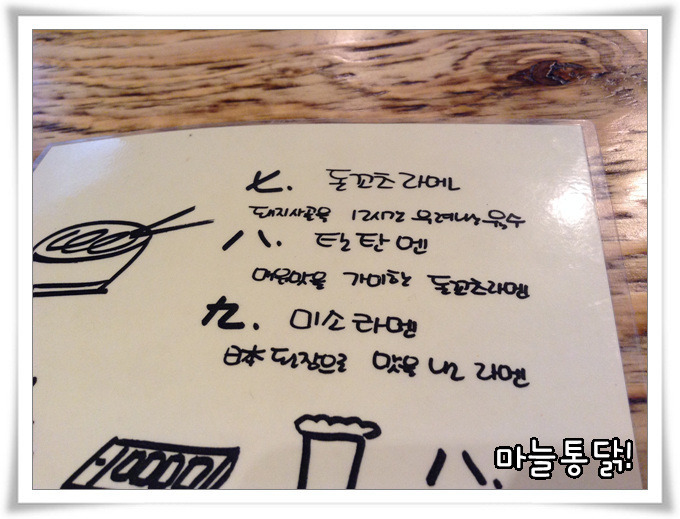 七. 돌꼬츠라멘
돼지사골육 12시간 우려나는 육수
八. 탄탄멘
매운맛을 가미한 돌꼬츠라멘
九. 미소라멘
日本 된장으로 맛을 낸 라멘
八.
마늘통닭!